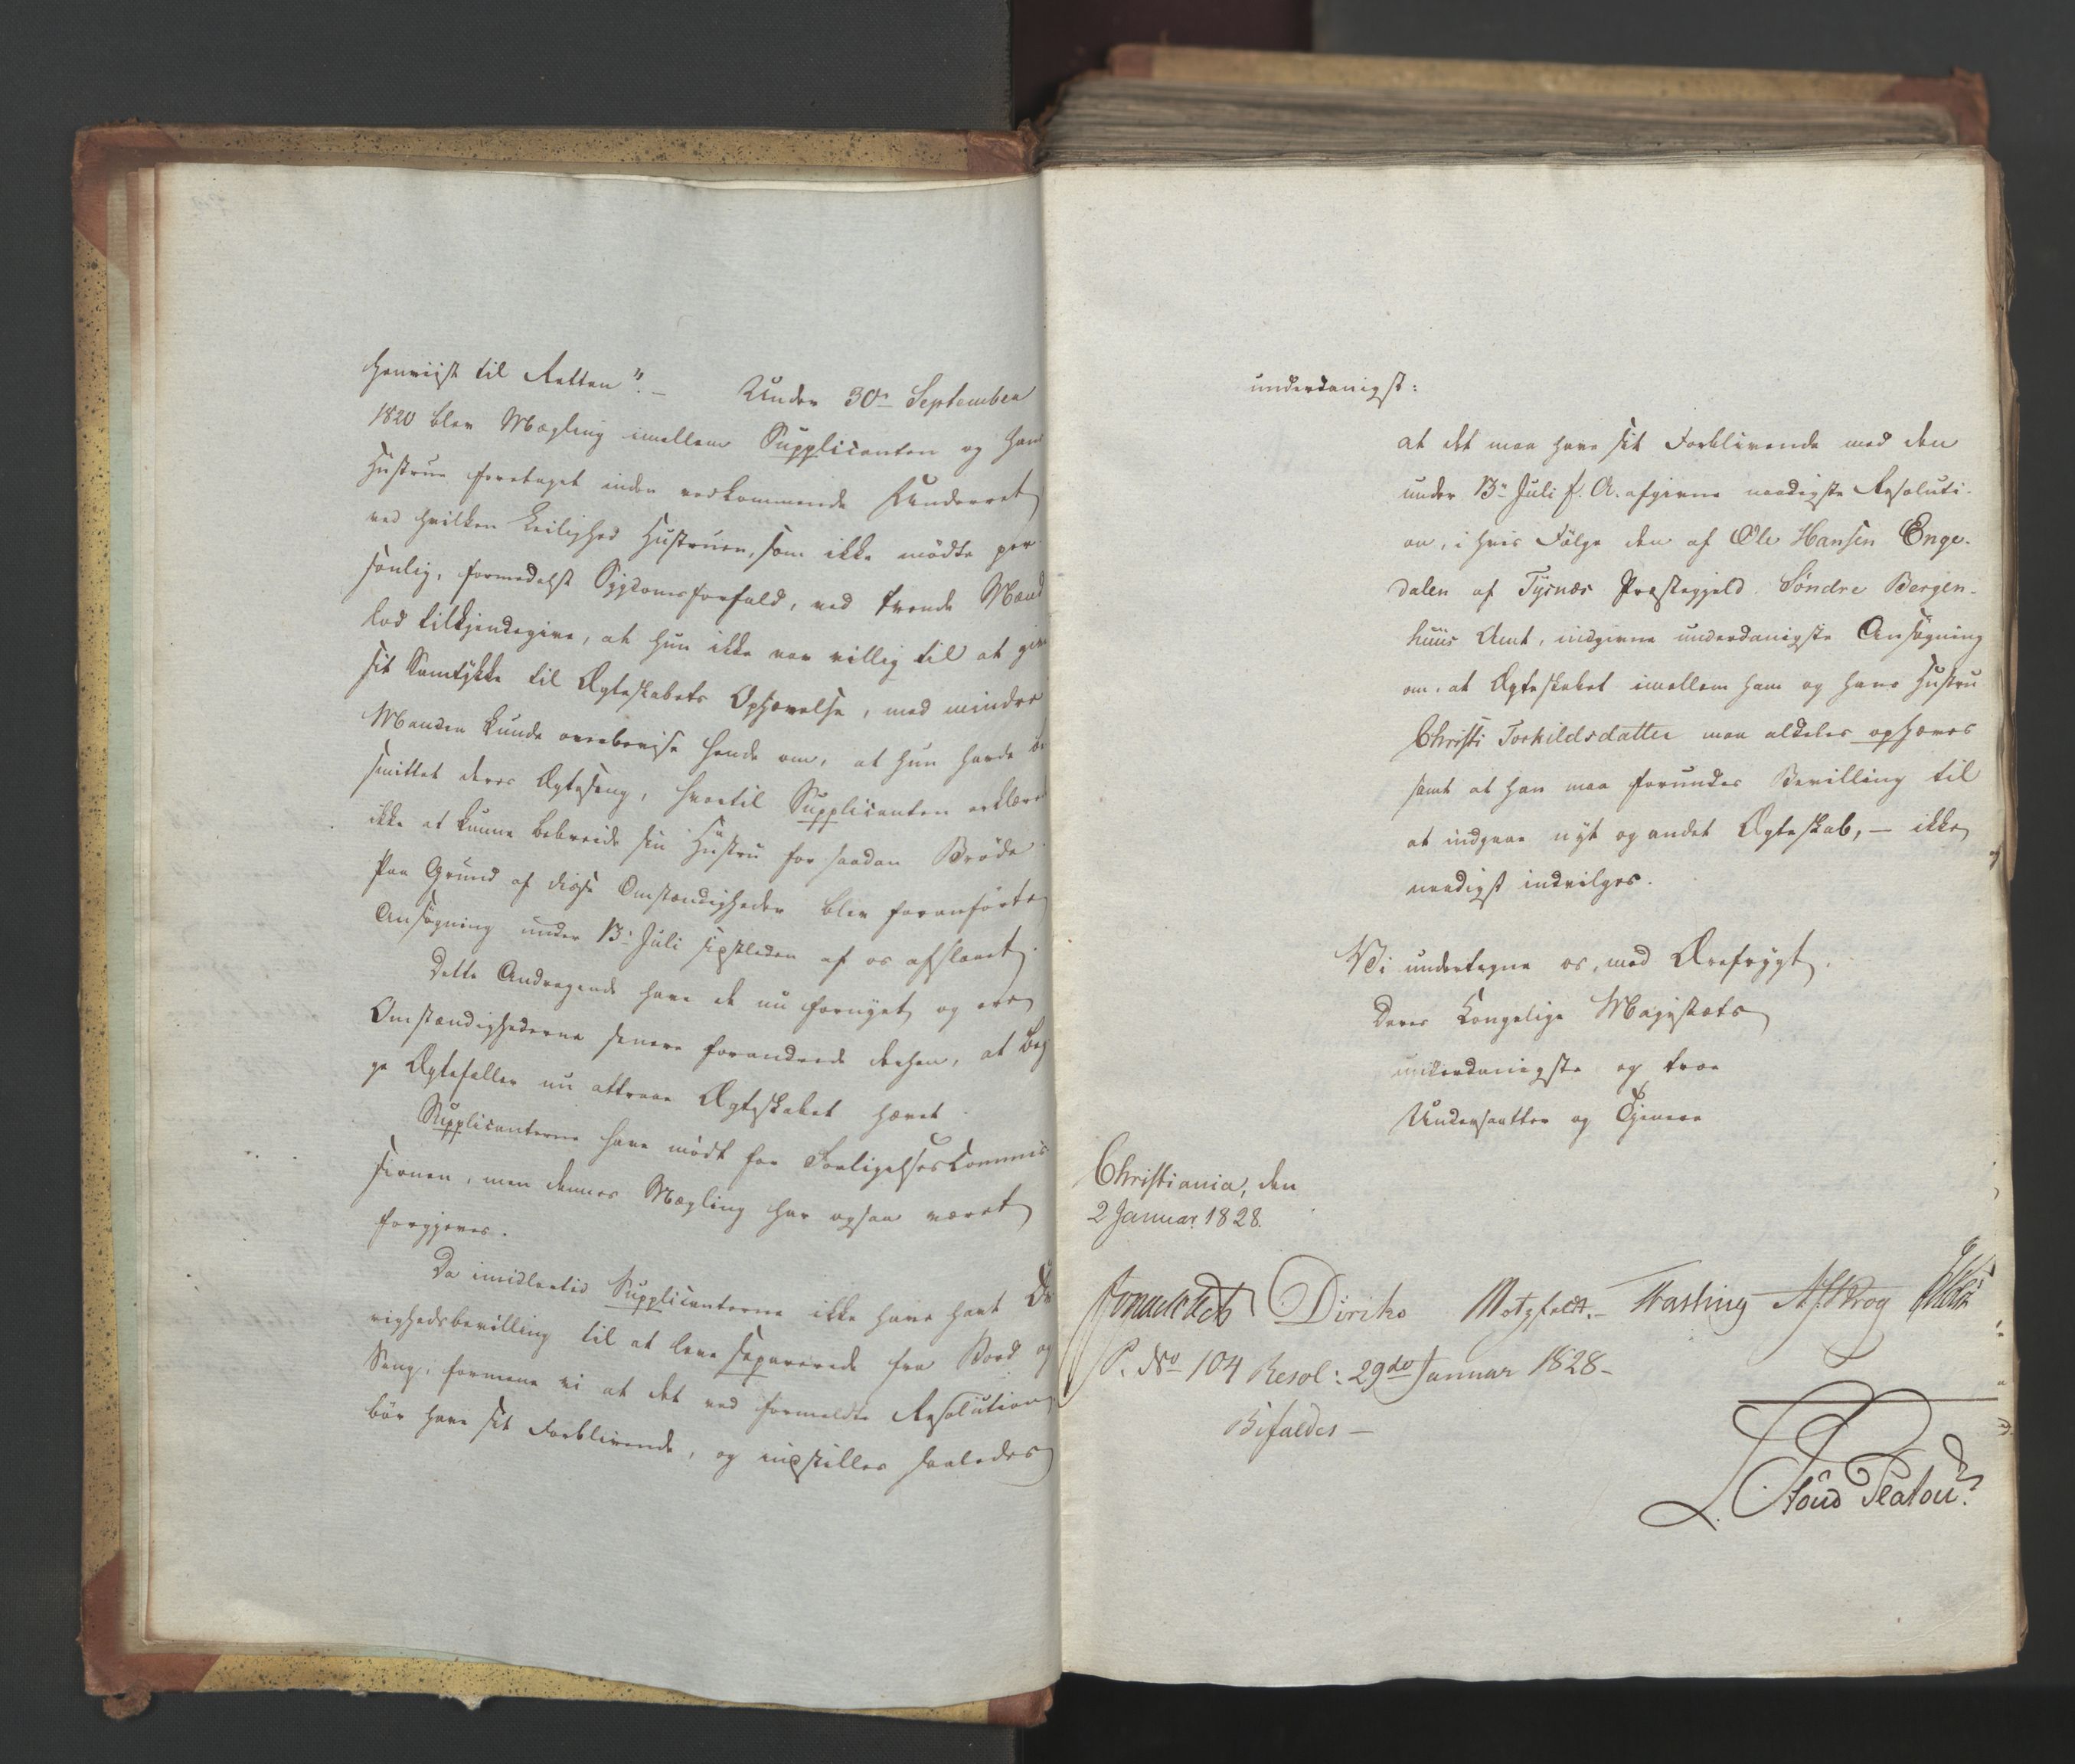 henviist til Retten". — Under 30te September
1820 blev Mægling imellem Supplicanten og hans
Hustrue foretaget inden vedkommende Underret
ved hvilken Leilighed Hustruen, som ikke mødte per-
sonlig, formedelst Sygdomsforfald, ved tvende Mænd
lod tilkjendegive, at hun ikke var villig til at give
sit Samtykke til Ægteskabets Ophævelse, med mindre
Manden kunde overbevise hende om, at hun havde be
smittet deres Ægteseng, hvortil Supplicanten erklærede
ikke at kunne bebreide sin Hustru for saadan Brøde.
Paa Grund af disse Omstændigheder blev foranførte
Ansøgning under 13de Juli sistleden af os afslaaet.
Dette Andragende have de nu fornyet, og ere
Omstændighederne senere forandrede derhen, at beg
ge Ægtefæller nu attraae Ægteskabet hævet.
Supplicanterne have mødt for Forligelsescommis
sionen, men dennes Mægling har ogsaa været
forgjeves.
Da imidlertid Supplicanterne ikke have havt Øv
righedsbevilling til at leve separerede fra Bord og
Seng, formene vi at det ved formeldte Resolution
bør have sit Forblivende, og indstilles saaledes
underdanigst:
at det maa have sit Forblivende med den
under 13de Juli f. A. afgivne naadigste Resoluti-
on, i hvis Følge den af Ole Hansen Enge-
dalen af Tysnæs Præstegjeld Søndre Bergen-
huus Amt, indgivne underdanigste Ansøgning
om, at Ægteskabet imellem ham og hans Hustru
Christi Torkildsdatter maa aldeles ophæves
samt at han maa forundes Bevilling til
at indgaae nyt og andet Ægteskab, — ikke
naadigst indvilges.
Vi undertegne os, med Ærefrygt,
Deres Kongelige Majestæts
underdanigste og troe
Undersaatter og Tjenere
Christiania, den
2 Januar 1828.
Jonas Collett Diriks Motzfeldt. Fasting A. Krog
P. No 104 Resol: 29de Januar 1828 —
Bifaldes —
L. Stoud Platou